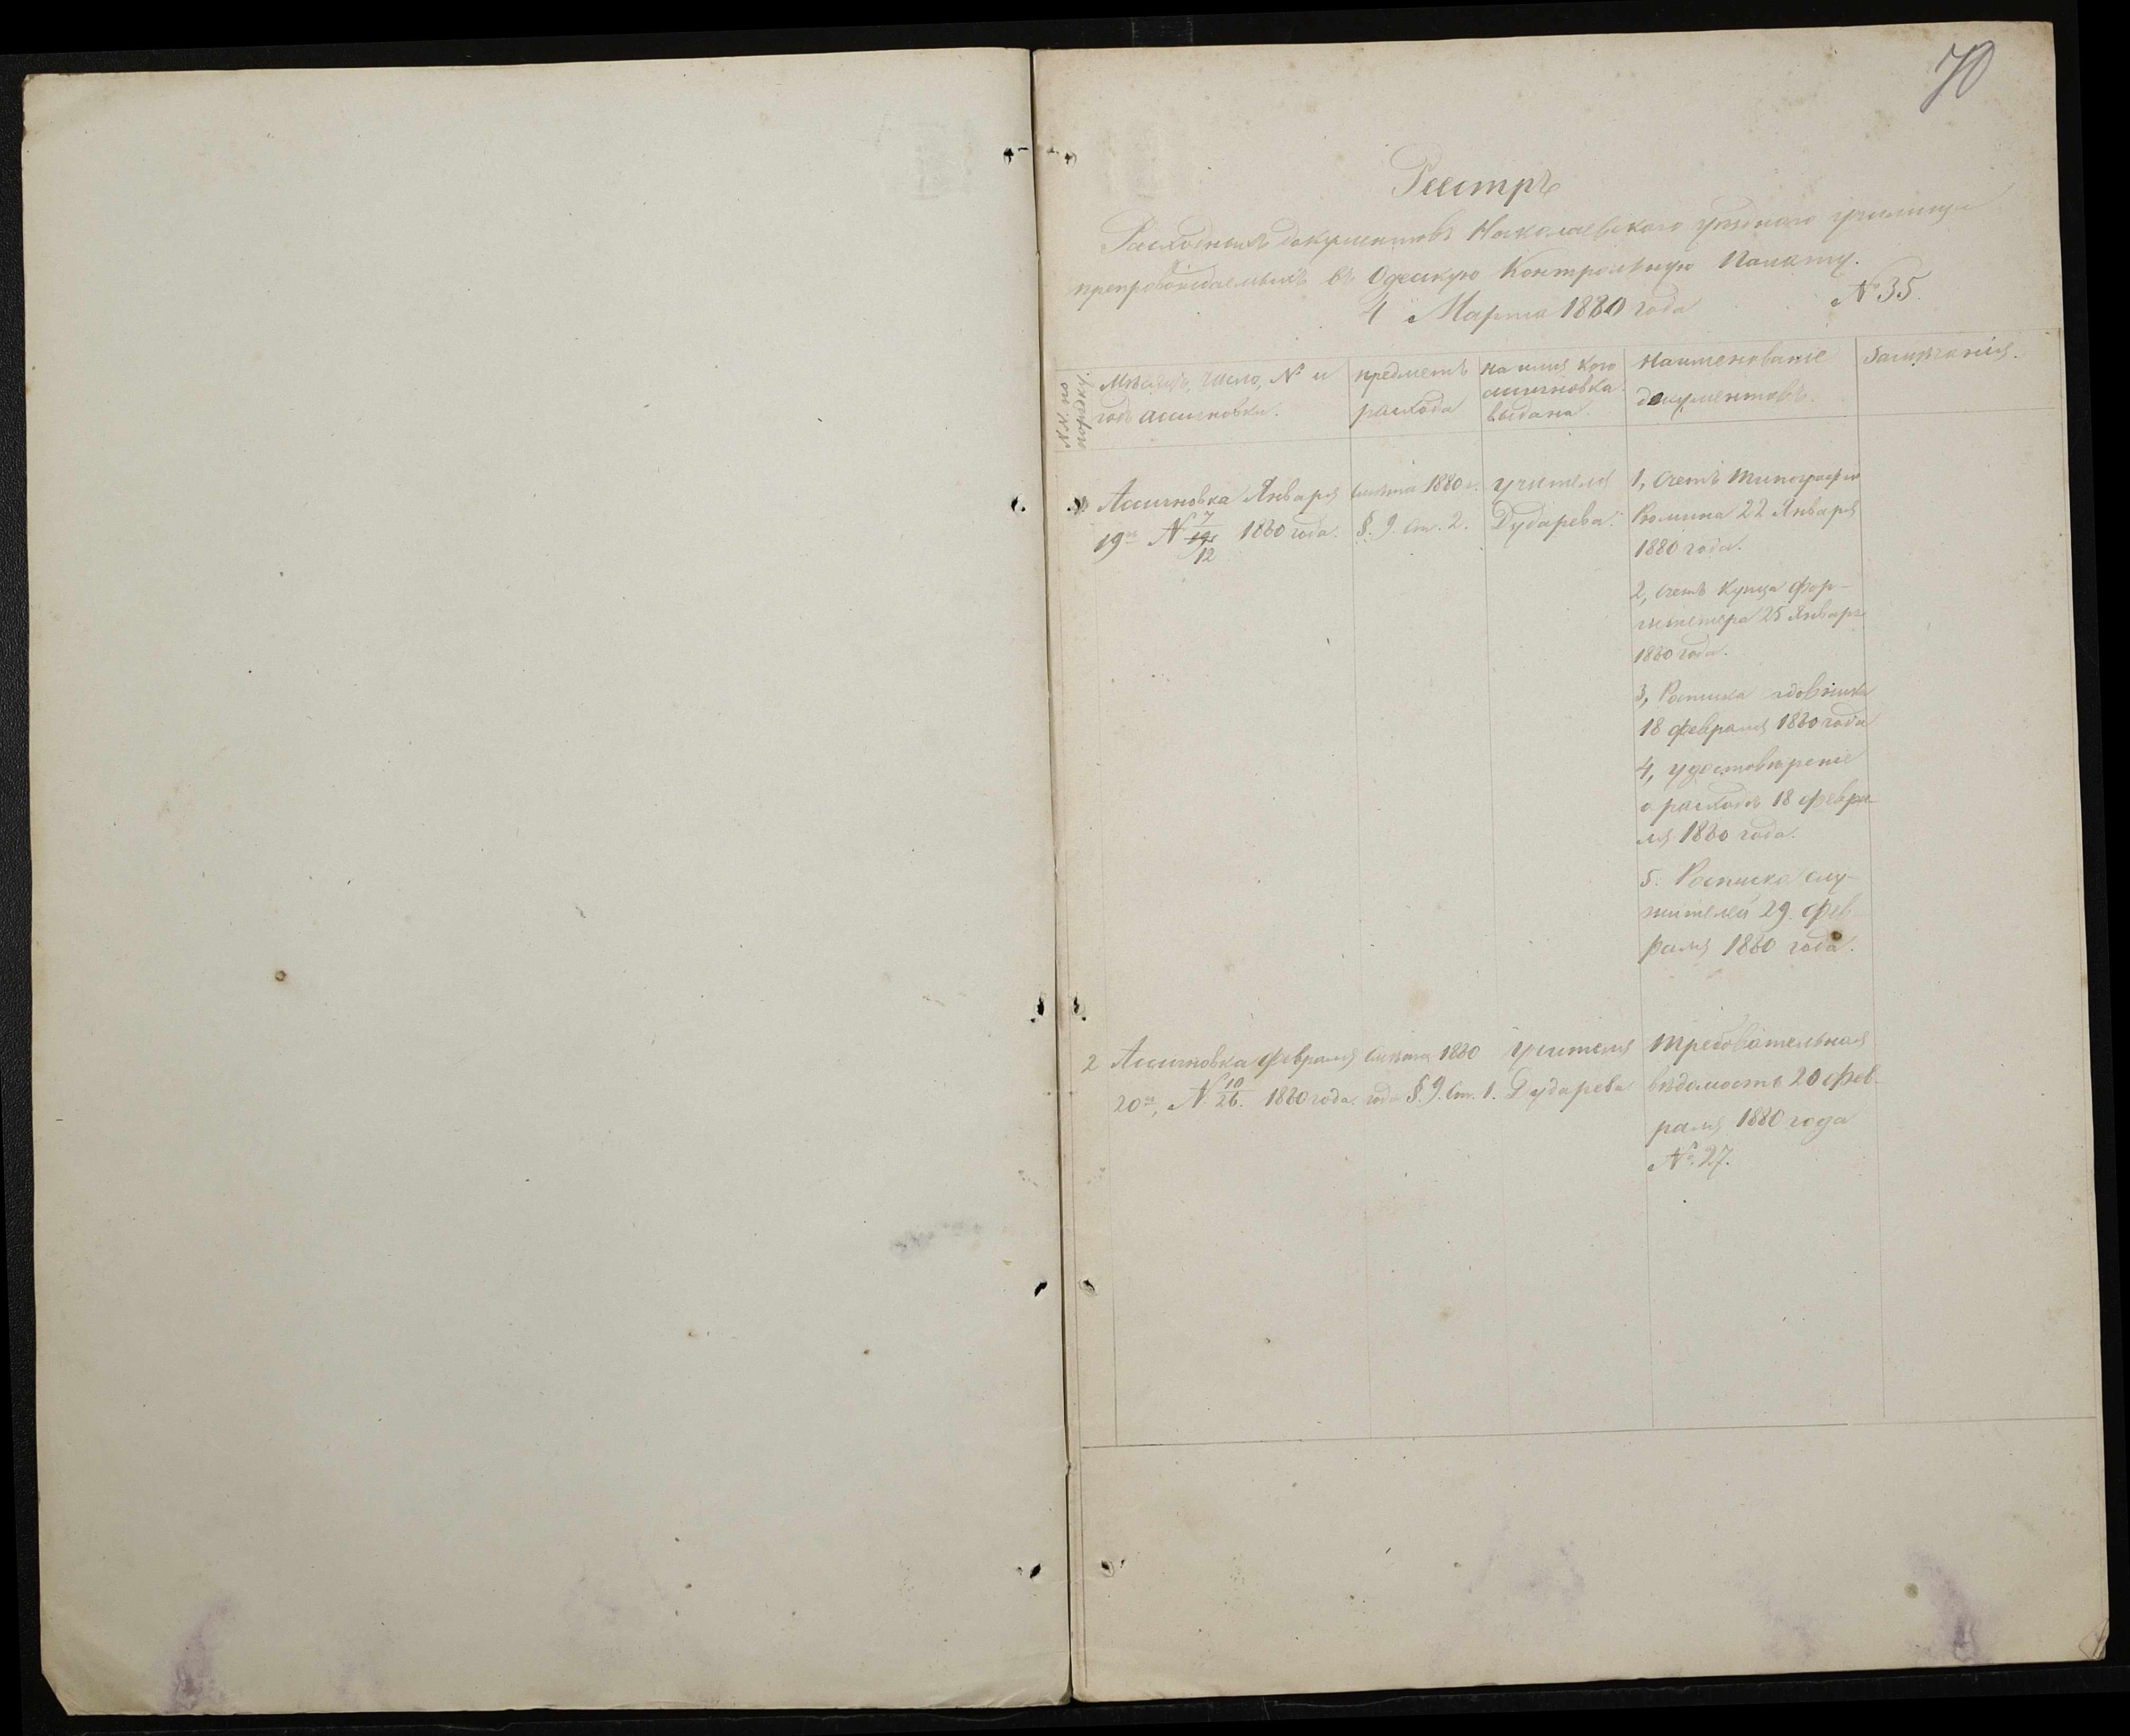 70
Реестръ
Расходныхъ документовъ Николаевскаго уѣзднаго училища
препровождаемыхъ въ Одескую Контрольную Палату.
4 Марта 1880 года № 35.
№№ по порядку.
Мѣсяцъ, число, № и
годъ ассигновки.
предметъ
расхода
на имя кого
ассигновка
выдана.
Наименованіе
документовъ.
Замѣчанія.
1 Ассигновка Января
19го № 7/12 1880 года.
Смѣта 1880 г.
§. 9. Ст. 2.
учителя
Дударева.
1, Счетъ Типографіи
22 Января
1880 года.
2, Счетъ Купца
25 Января
1880 года.
3, Росписка
18 февраля 1880 года
4, удостовѣреніе
о расходѣ 18 февра-
ля 1880 года.
5. Росписка слу-
жителей 29 фев-
раля 1880 года.
2 Ассигновка февраля
20го, № 10/26. 1880 года.
Смѣта 1880
года §. 9. Ст. 1.
Учителя
Дударева
Требовательная
вѣдомость 20 фев-
раля 1880 года
№ 27.